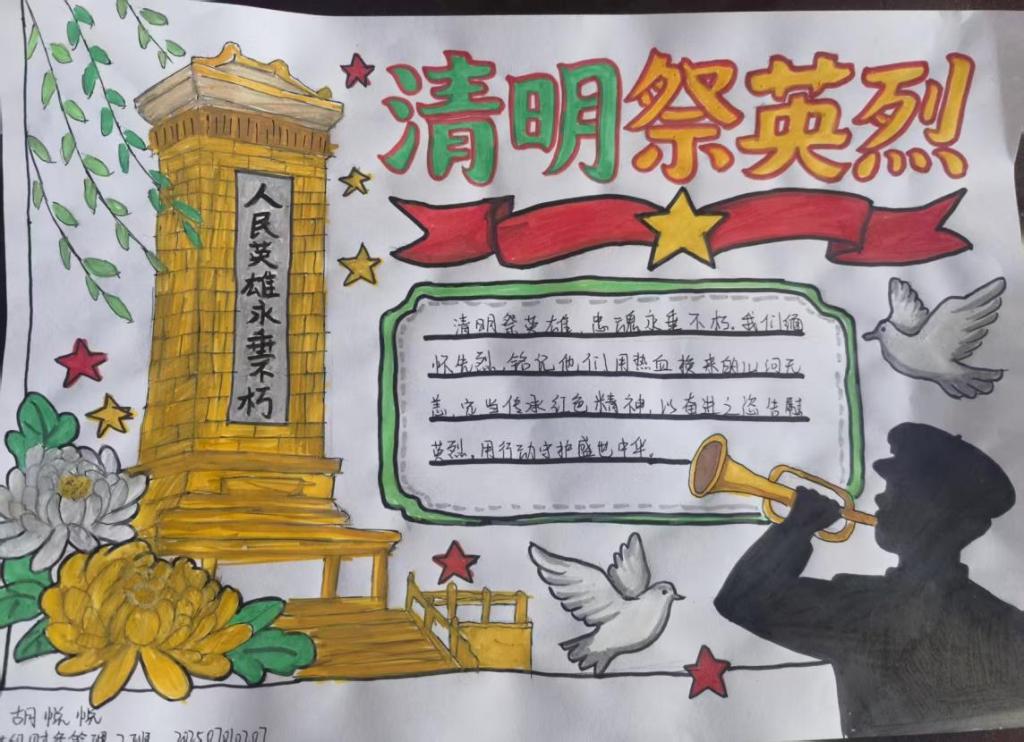 清明祭英烈
人民英雄永垂不朽
清明祭英雄,忠魂永垂不朽。我们缅
怀先烈,铭记他们用热血换来的山河无
恙,定当传承红色精神,以奋进之姿告慰
英烈,用行动守护盛世中华。
胡悦悦
2班 202507010207